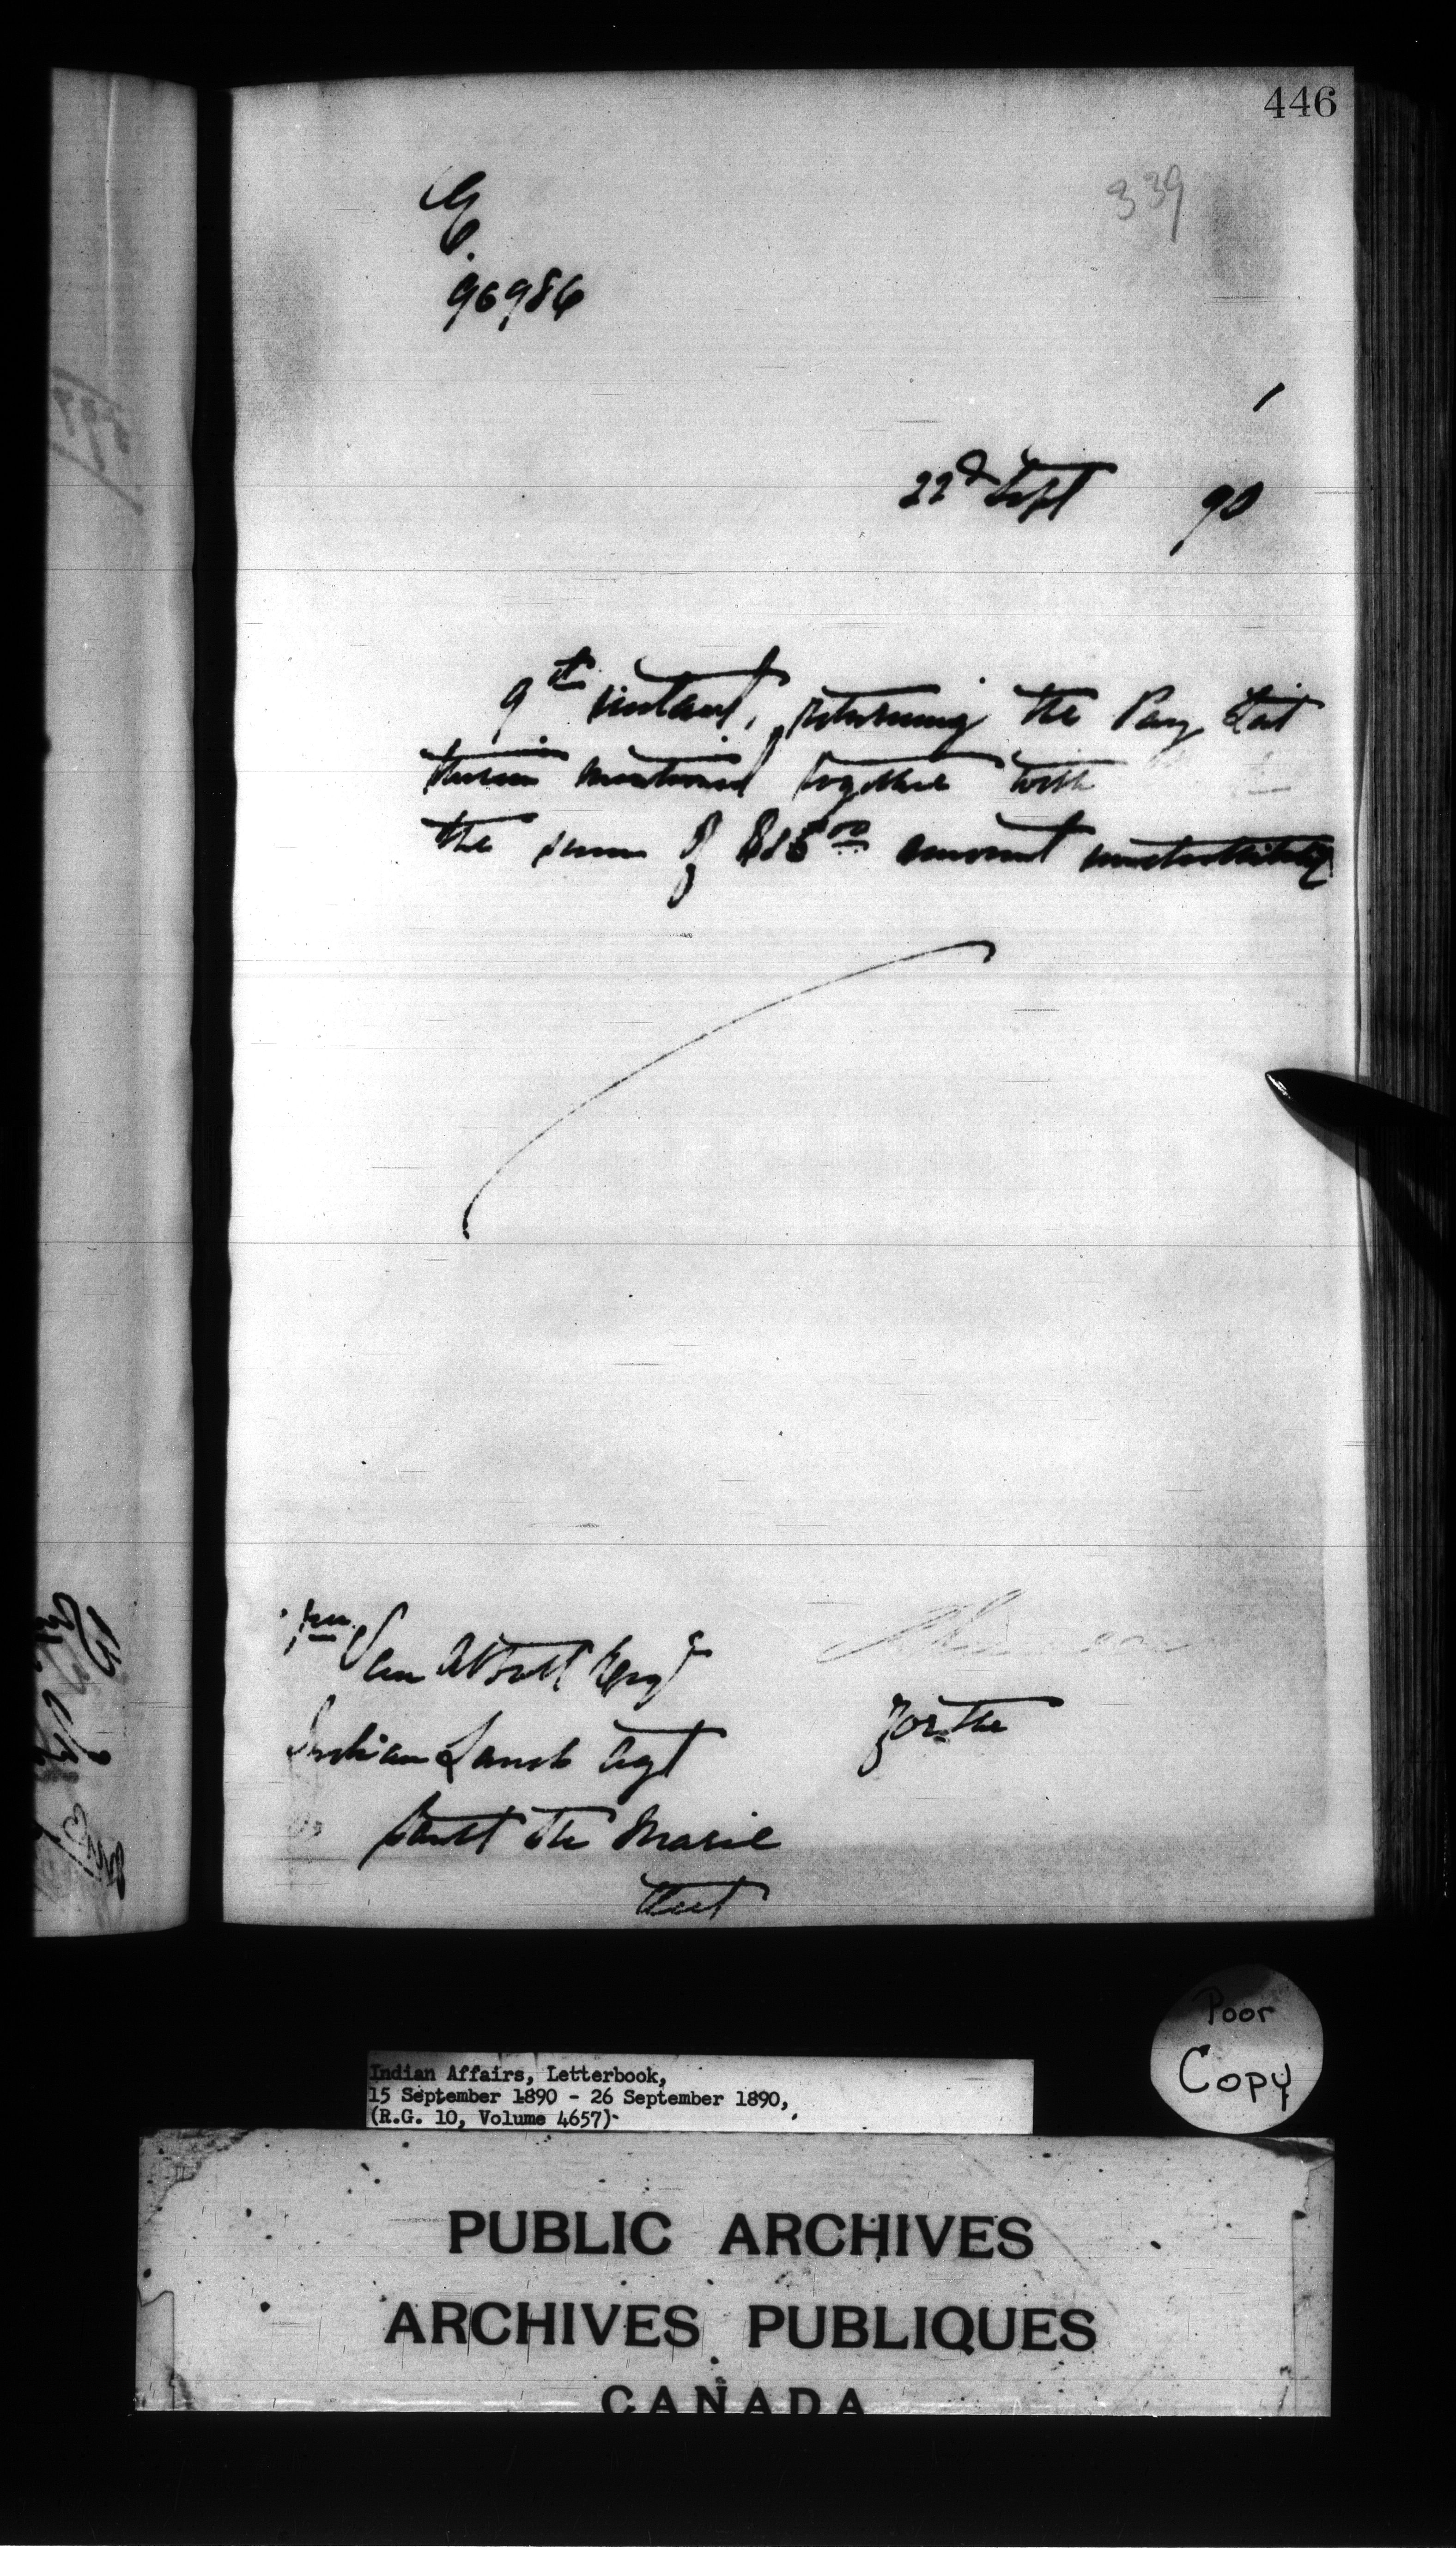 446
339
96986
22d Sept 90
9th instant, returning the Pay List
therein mentioned together with
the sum of amount undistributed
Wm Van Abbott Esqr
Indian Lands Agt
For the
Sault Ste Marie
Ont
Poor
Copy
Indian Affairs, Letterbook,
15 September 1890 - 26 September 1890,
(R.G. 10, Volume 4657)
PUBLIC ARCHIVES
ARCHIVES PUBLIQUES
CANADA